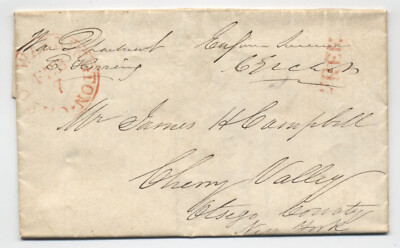 War Department
E. Herring
FREE
Mr James H Campbell
Cherry Valley
Otsego County
New York